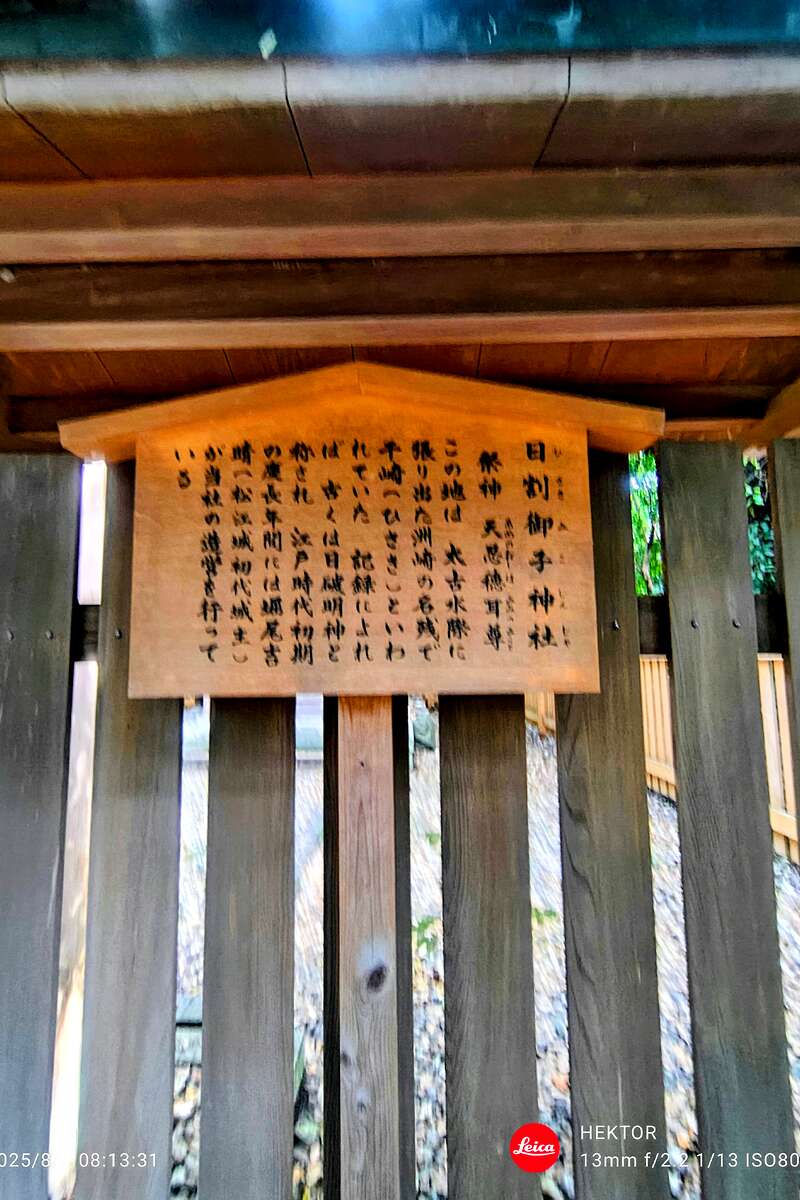 日割御子神社
ひさきみこじんじゃ
祭神 天忍穂耳尊
この地は 太古水際に
張り出た洲崎の名残で
干崎(ひさき)といわ
れていた 記録によれ
ば 古くは日破明神と
称され 江戸時代初期
の慶長年間には堀尾吉
晴(松江城初代城主)
が当社の造営を行って
いる
025/8 08:13:31
Leica
HEKTOR
13mm f/2.2 1/13 ISO80